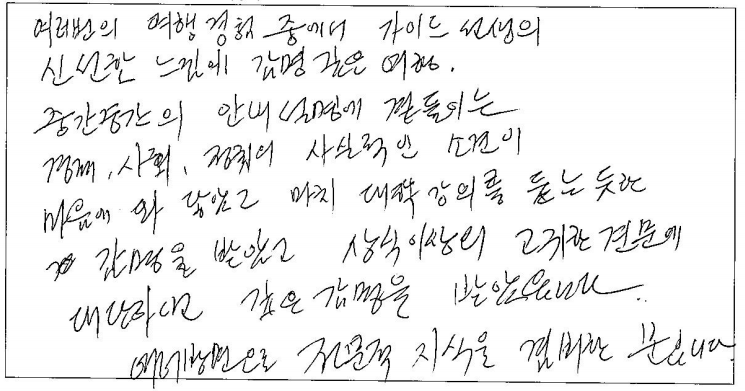 여러번의 여행 경험 중에서 가이드 선생의
신선한 느낌에 감명 깊은 여행.
중간중간의 안내 설명에 곁들이는
경제, 사회, 정치의 사실적인 소견이
마음에 와 닿았고 마치 대학 강의를 듣는 듯한
감명을 받았고 상식이상의 고귀한 견문에
대단하고 깊은 감명을 받았읍니다.
여러방면으로 전문적 지식을 겸비한 분입니다.